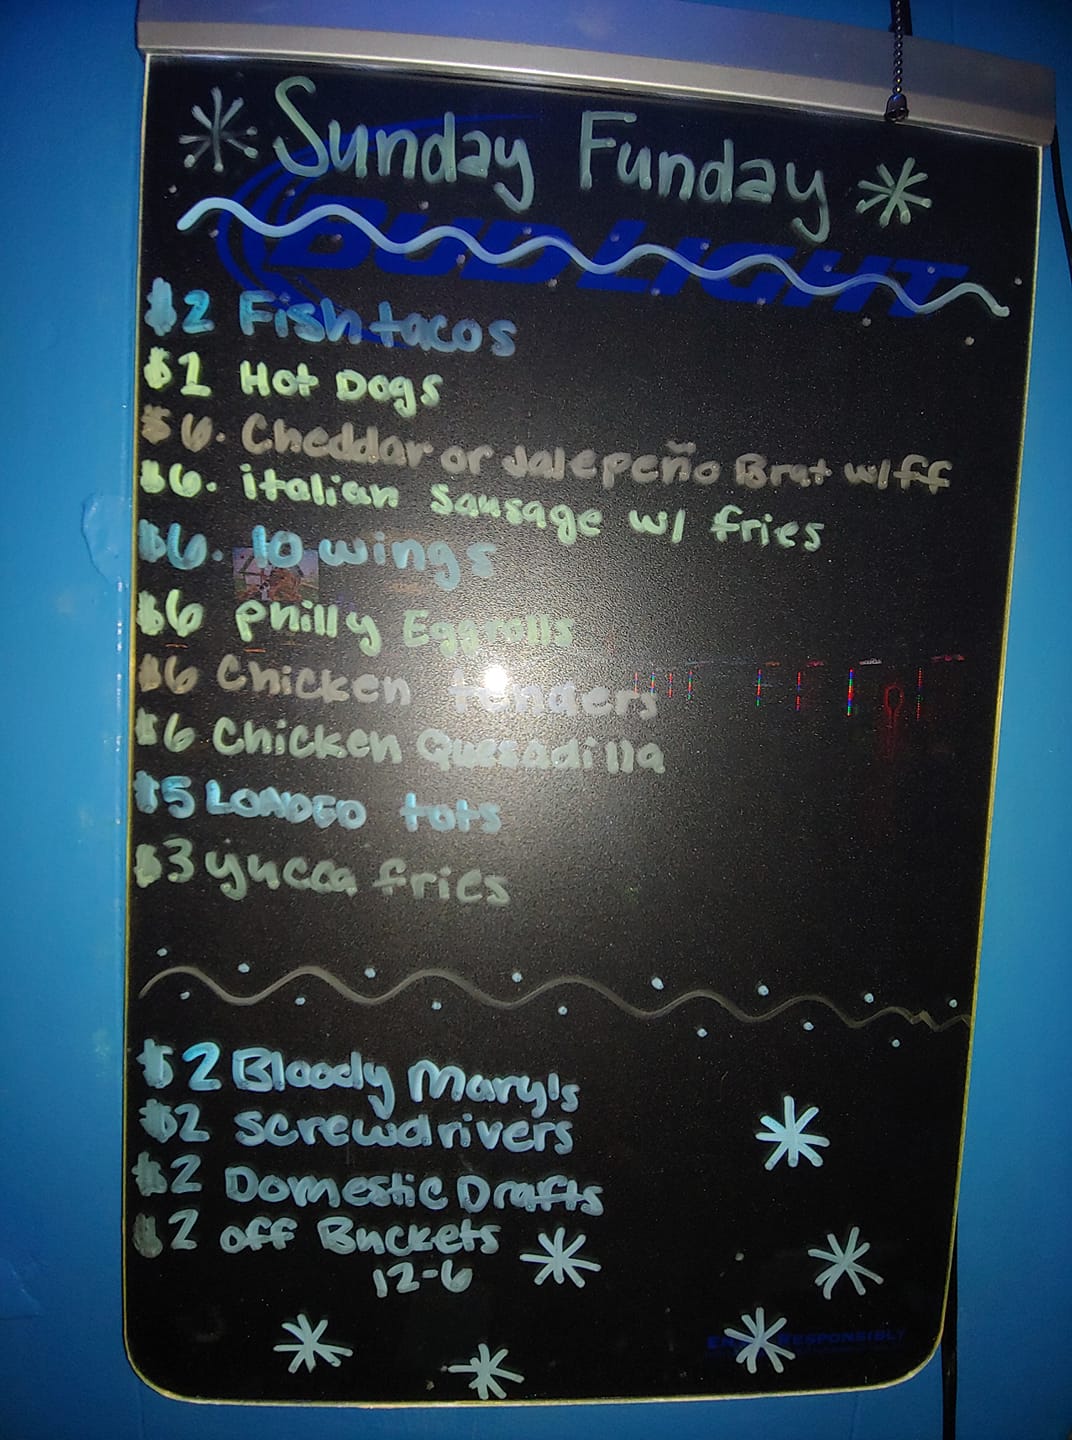 Sunday Funday
BUD LIGHT
$2 Fish tacos
$1 Hot Dogs
$6. Cheddar or Jalepeño Brat w/ff
$6. italian sausage w/ fries
$6. 10 wings
$6 philly Eggrolls
$6 Chicken tenders
$6 Chicken Quesadilla
$5 LOADED tots
$3 yucca fries
$2 Bloody Mary's
$2 screwdrivers
$2 Domestic Drafts
$2 off Buckets
12-6
RESPONSIBLY